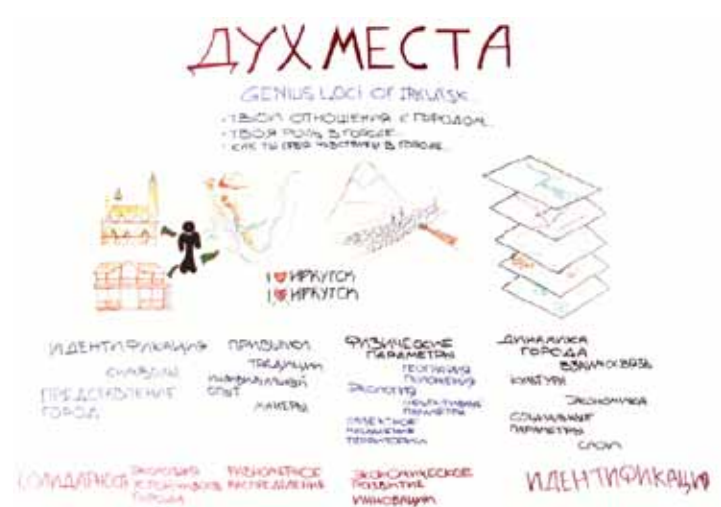 ДУХ МЕСТА
GENIUS LOCI OF IRKUTSK...
• ТВОИ ОТНОШЕНИЯ С ГОРОДОМ...
• ТВОЯ РОЛЬ В ГОРОДЕ...
• КАК ТЫ СЕБЯ ЧУВСТВУЕШЬ В ГОРОДЕ...
I ❤ ИРКУТСК
I ❤ ИРКУТСК
ИДЕНТИФИКАЦИЯ
СИМВОЛЫ
ПРЕДСТАВЛЕНИЕ
ГОРОД
ПРИВЫЧКИ
ТРАДИЦИИ
ИНДИВИДУАЛЬНЫЙ
ОПЫТ
МАНЕРЫ
ФИЗИЧЕСКИЕ
ПАРАМЕТРЫ
ГЕОГРАФИЯ
ПОЛОЖЕНИЯ
ЭКОЛОГИЯ
ПАРАМЕТРЫ
ТЕРРИТОРИИ
ДИНАМИКА
ГОРОДА
ВЗАИМОСВЯЗЬ
КУЛЬТУРА
ЭКОНОМИКА
СОЦИАЛЬНЫЕ
ПАРАМЕТРЫ
СЛОИ
СОЛИДАРНОСТЬ
ЭКОЛОГИЯ
ГОРОДА
РАВНОМЕРНОЕ
РАСПРЕДЕЛЕНИЕ
ЭКОНОМИЧЕСКОЕ
РАЗВИТИЕ
ИННОВАЦИИ
ИДЕНТИФИКАЦИЯ